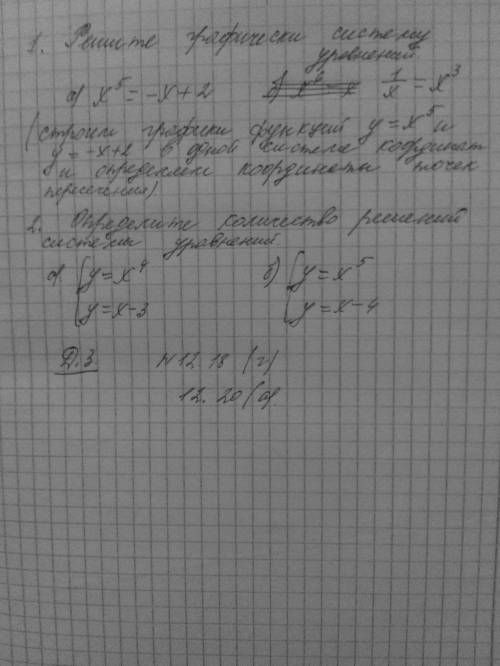 1. Решите графически систему
уравнений.
а) x⁵ = -x+2 б) 1/x = x³
(строим графики функций y=x⁵ и
y=-x+2 в одной системе координат
и определяем координаты точек
пересечения).
2. Определите количество решений
системы уравнений.
а) {y=x⁴ б) {y=x⁵
{y=x-3 {y=x-4
Д.з. №12.18 (г)
12.20 (а)